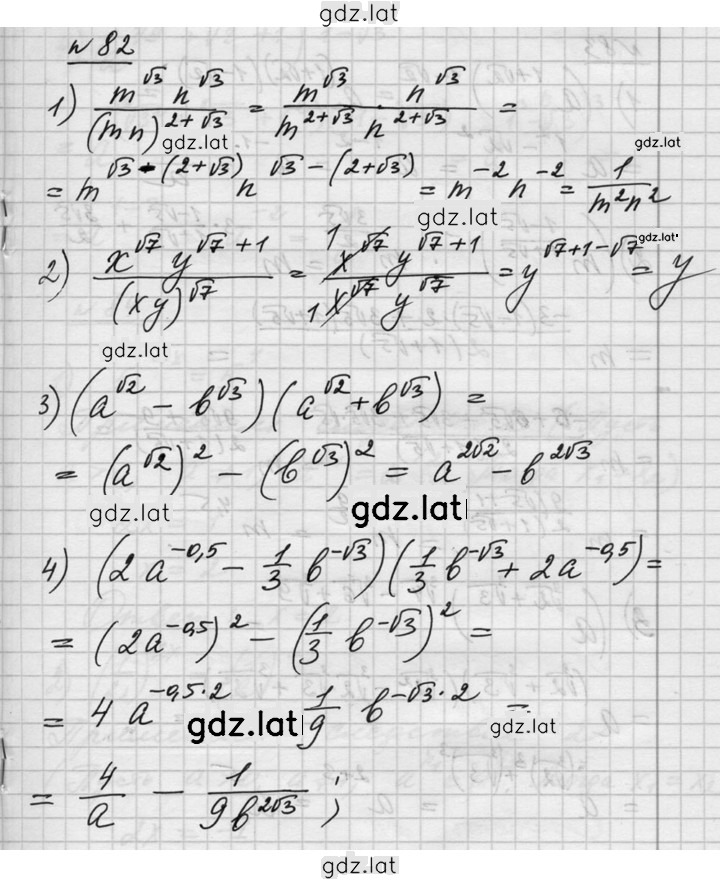 gdz.lat
№ 82
1) m^√3 n^√3 / (mn)^(2+√3) = m^√3 · n^√3 / m^(2+√3) n^(2+√3) =
gdz.lat
= m^(√3-(2+√3)) n^(√3-(2+√3)) = m^-2 n^-2 = 1/m²n²
gdz.lat
gdz.lat
2) x^√7 y^(√7+1) / (xy)^√7 = 1 x^√7 y^(√7+1) / 1 x^√7 y^√7 = y^(√7+1-√7) = y
gdz.lat
gdz.lat
3) (a^√2 - b^√3)(a^√2 + b^√3) =
= (a^√2)² - (b^√3)² = a^(2√2) - b^(2√3)
gdz.lat
gdz.lat
4) (2a^(-0,5) - 1/3 b^(-√3))(1/3 b^(-√3) + 2a^(-0,5)) =
= (2a^(-0,5))² - (1/3 b^(-√3))² =
= 4a^(-0,5·2) 1/9 b^(-√3·2) =
gdz.lat
gdz.lat
= 4/a - 1/9b^(2√3) ;
gdz.lat